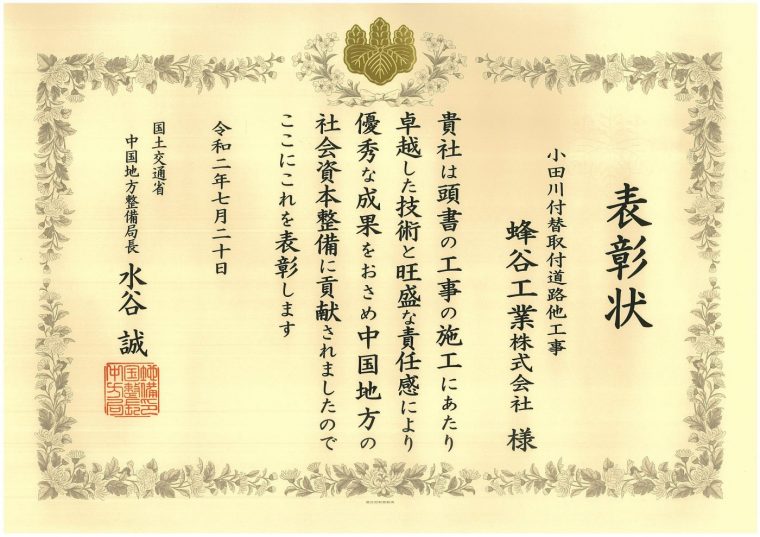 表彰状
小田川付替取付道路他工事
蜂谷工業株式会社 様
貴社は頭書の工事の施工にあたり
卓越した技術と旺盛な責任感により
優秀な成果をおさめ中国地方の
社会資本整備に貢献されましたので
ここにこれを表彰します
令和二年七月二十日
国土交通省
中国地方整備局長 水谷 誠